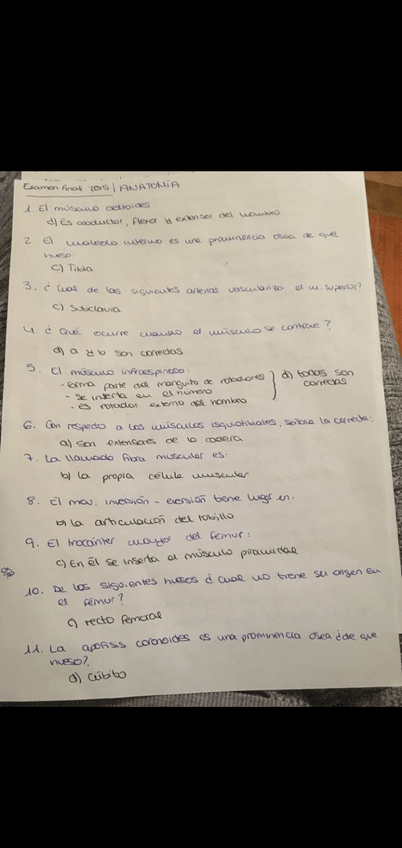 Examen final 2015 | ANATOMÍA
1. El músculo deltoides:
d) Es abductor, flexor y extensor del hombro
2. El maleolo interno es una prominencia ósea de que
hueso:
c) Tibia
3. ¿Cual de las siguientes arterias vasculariza el m. superior?
c) Subclavia
4. ¿Qué ocurre cuando el músculo se contrae?
d) a y b son correctas
5. El músculo infraespinoso:
- forma parte del manguito de rotadores
- se inserta en el húmero
- es rotador externo del hombro
d) todas son
correctas
6. Con respecto a los músculos isquiotibiales, señale la correcta:
a) son extensores de la cadera
7. La llamada fibra muscular es:
b) la propia célula muscular
8. El mov. inversión - eversión tiene lugar en:
b) la articulación del tobillo
9. El trocánter mayor del fémur:
c) En él se inserta el músculo piramidal
10. De los siguientes huesos ¿cual no tiene su origen en
el fémur?
c) recto femoral
11. La apófisis coronoides es una prominencia ósea ¿de que
hueso?
d) cúbito